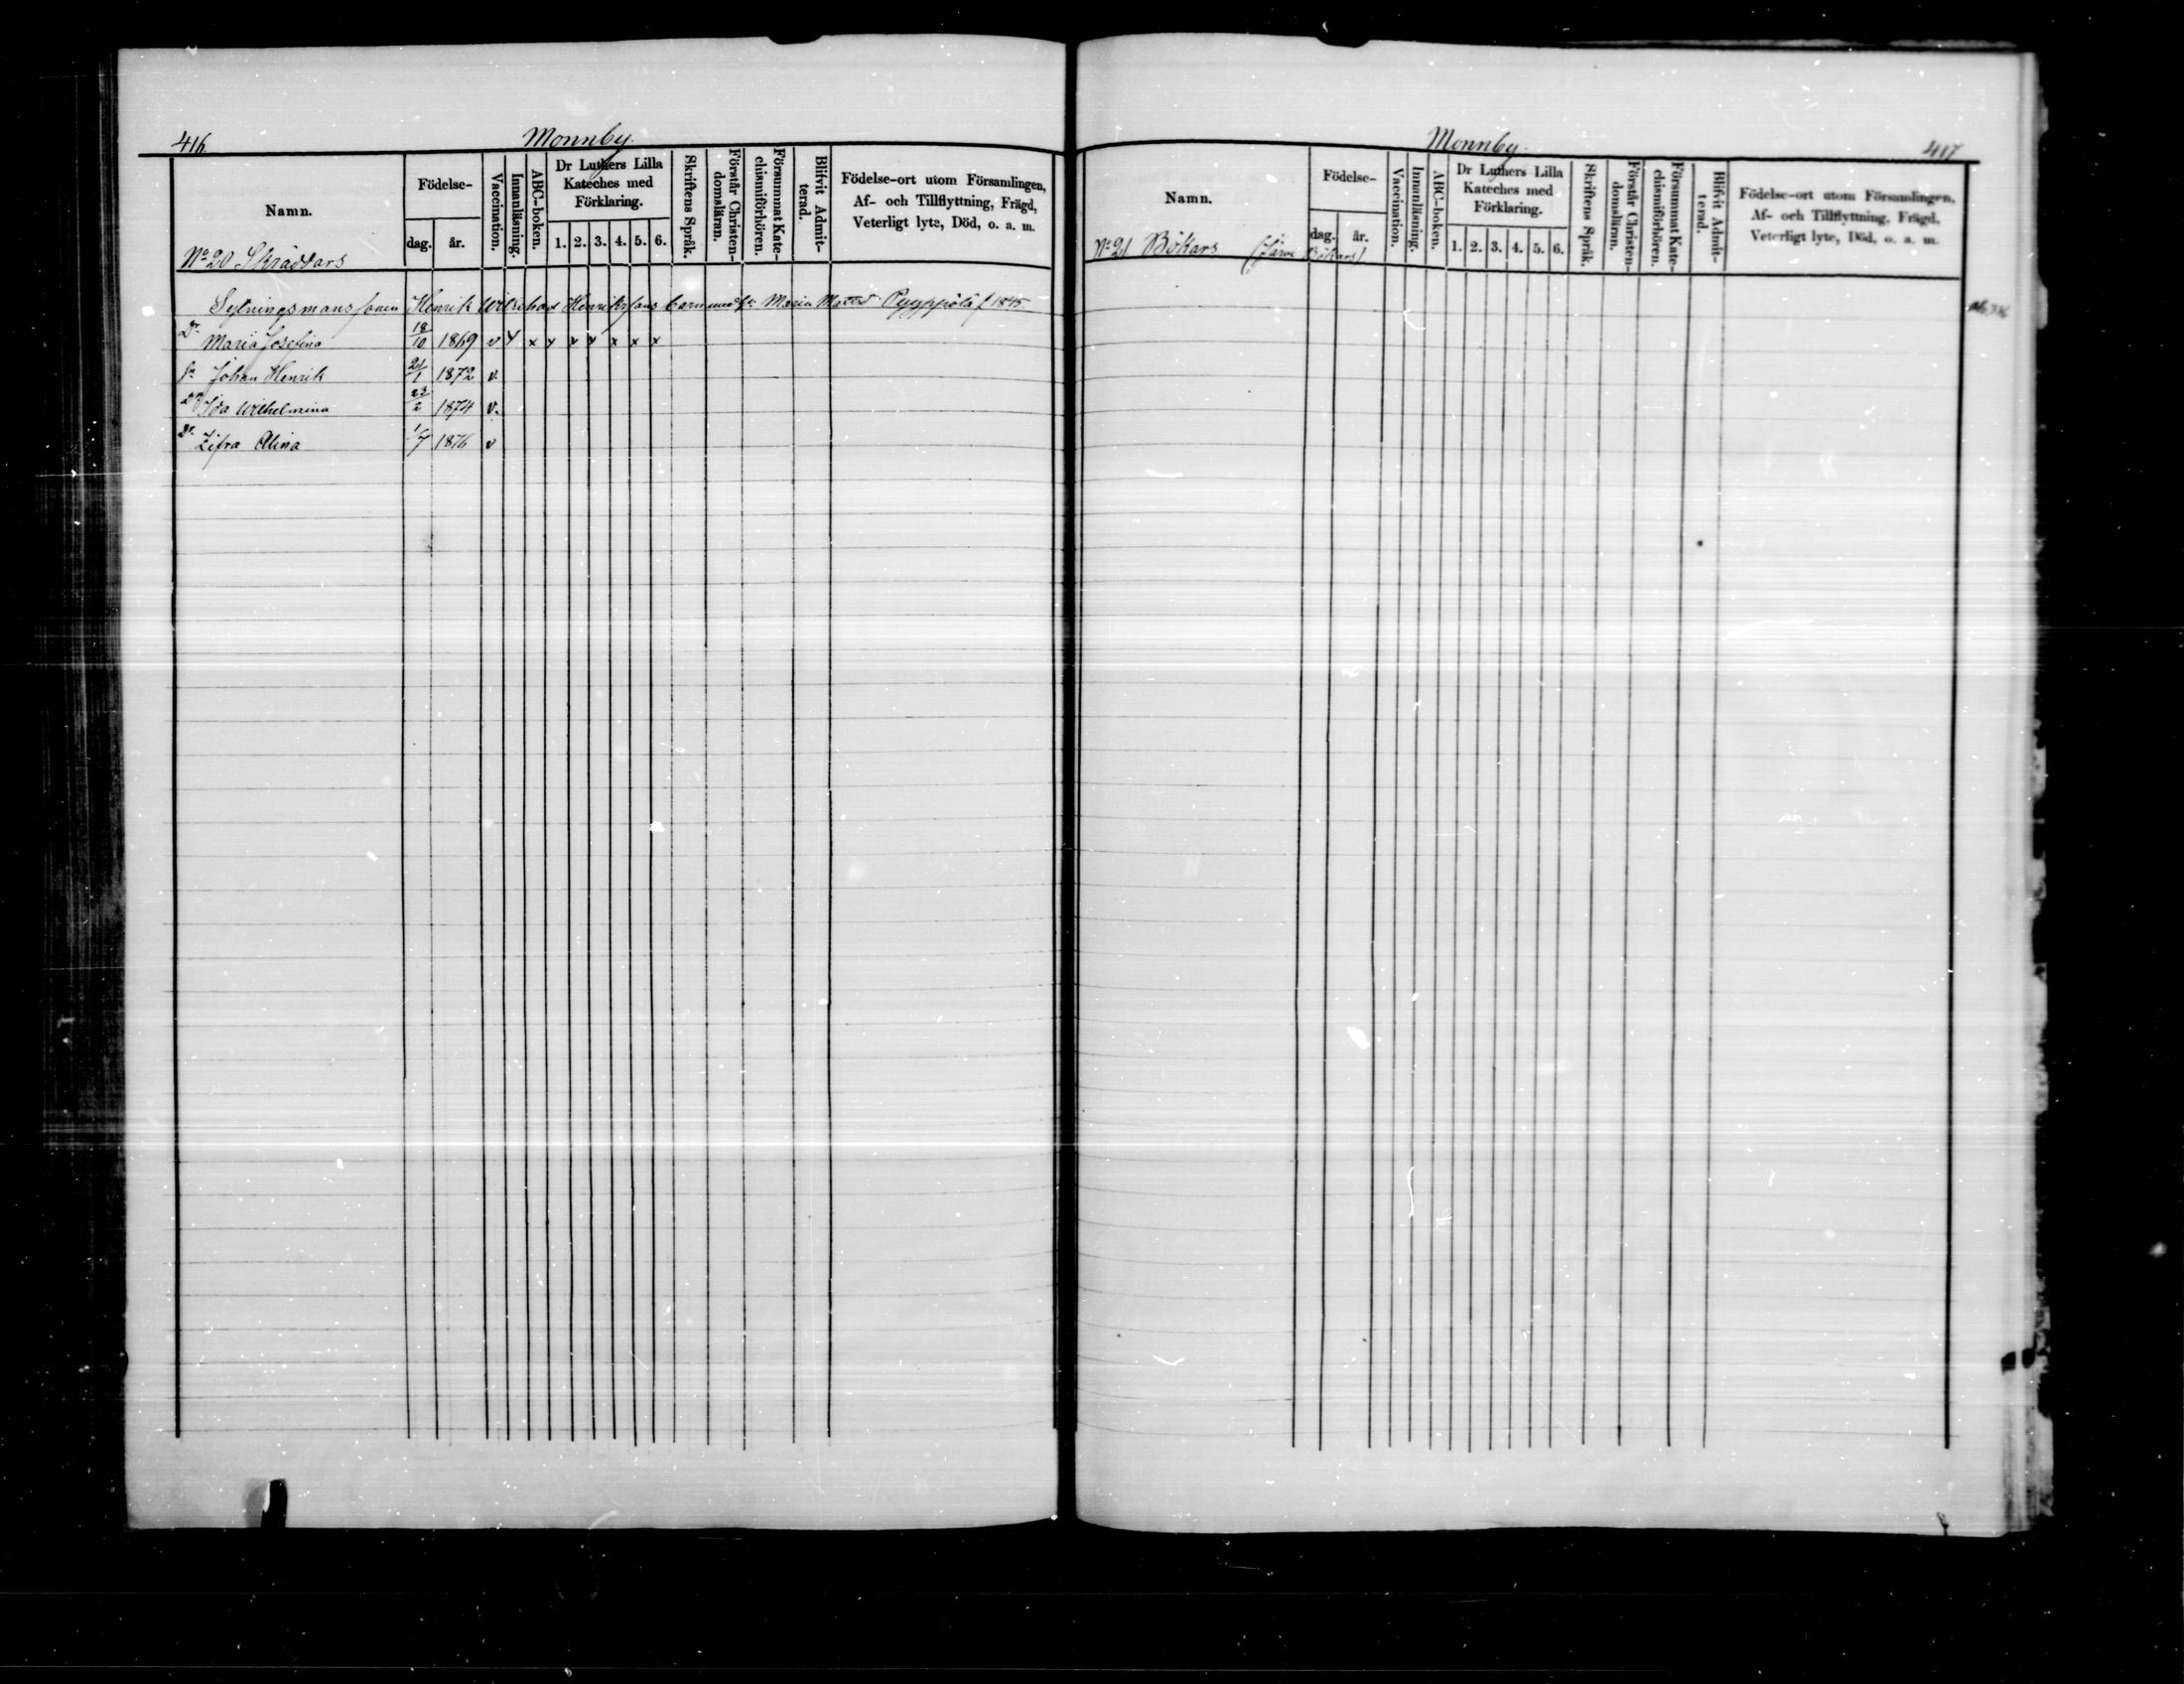 416.
Monnby.
Namn.
Födelse-
dag.
år.
Vaccination.
Innanläsning.
ABC-boken.
Dr Luthers Lilla
Kateches med
Förklaring.
1. 2. 3. 4. 5. 6.
Skriftens Språk.
Förstår Christen-
domsläran.
Försummat Kate-
chismiförhören.
Blifvit Admit-
terad.
Födelse-ort utom Församlingen,
Af- och Tillflyttning, Frägd,
Veterligt lyte, Död, o. a. m.
No 20 Skräddars
Sytningsmanssonen Henrik Henrikssons barn Maria f 1845
Dr Maria Josefina 18/10 1869 v x x x x x x x
Sn Johan Henrik 21/1 1872 v.
Dr Ida Wilhelmina 23/2 1874 v.
Dr Zifra Alina 1/7 1876 v
Monnby.
417
Namn.
Födelse-
dag.
år.
Vaccination.
Innanläsning.
ABC-boken.
Dr Luthers Lilla
Kateches med
Förklaring.
1. 2. 3. 4. 5. 6.
Skriftens Språk.
Förstår Christen-
domsläran.
Försummat Kate-
chismiförhören.
Blifvit Admit-
terad.
Födelse-ort utom Församlingen,
Af- och Tillflyttning, Frägd,
Veterligt lyte, Död, o. a. m.
No 21 Bökars (Järvi Bökars)